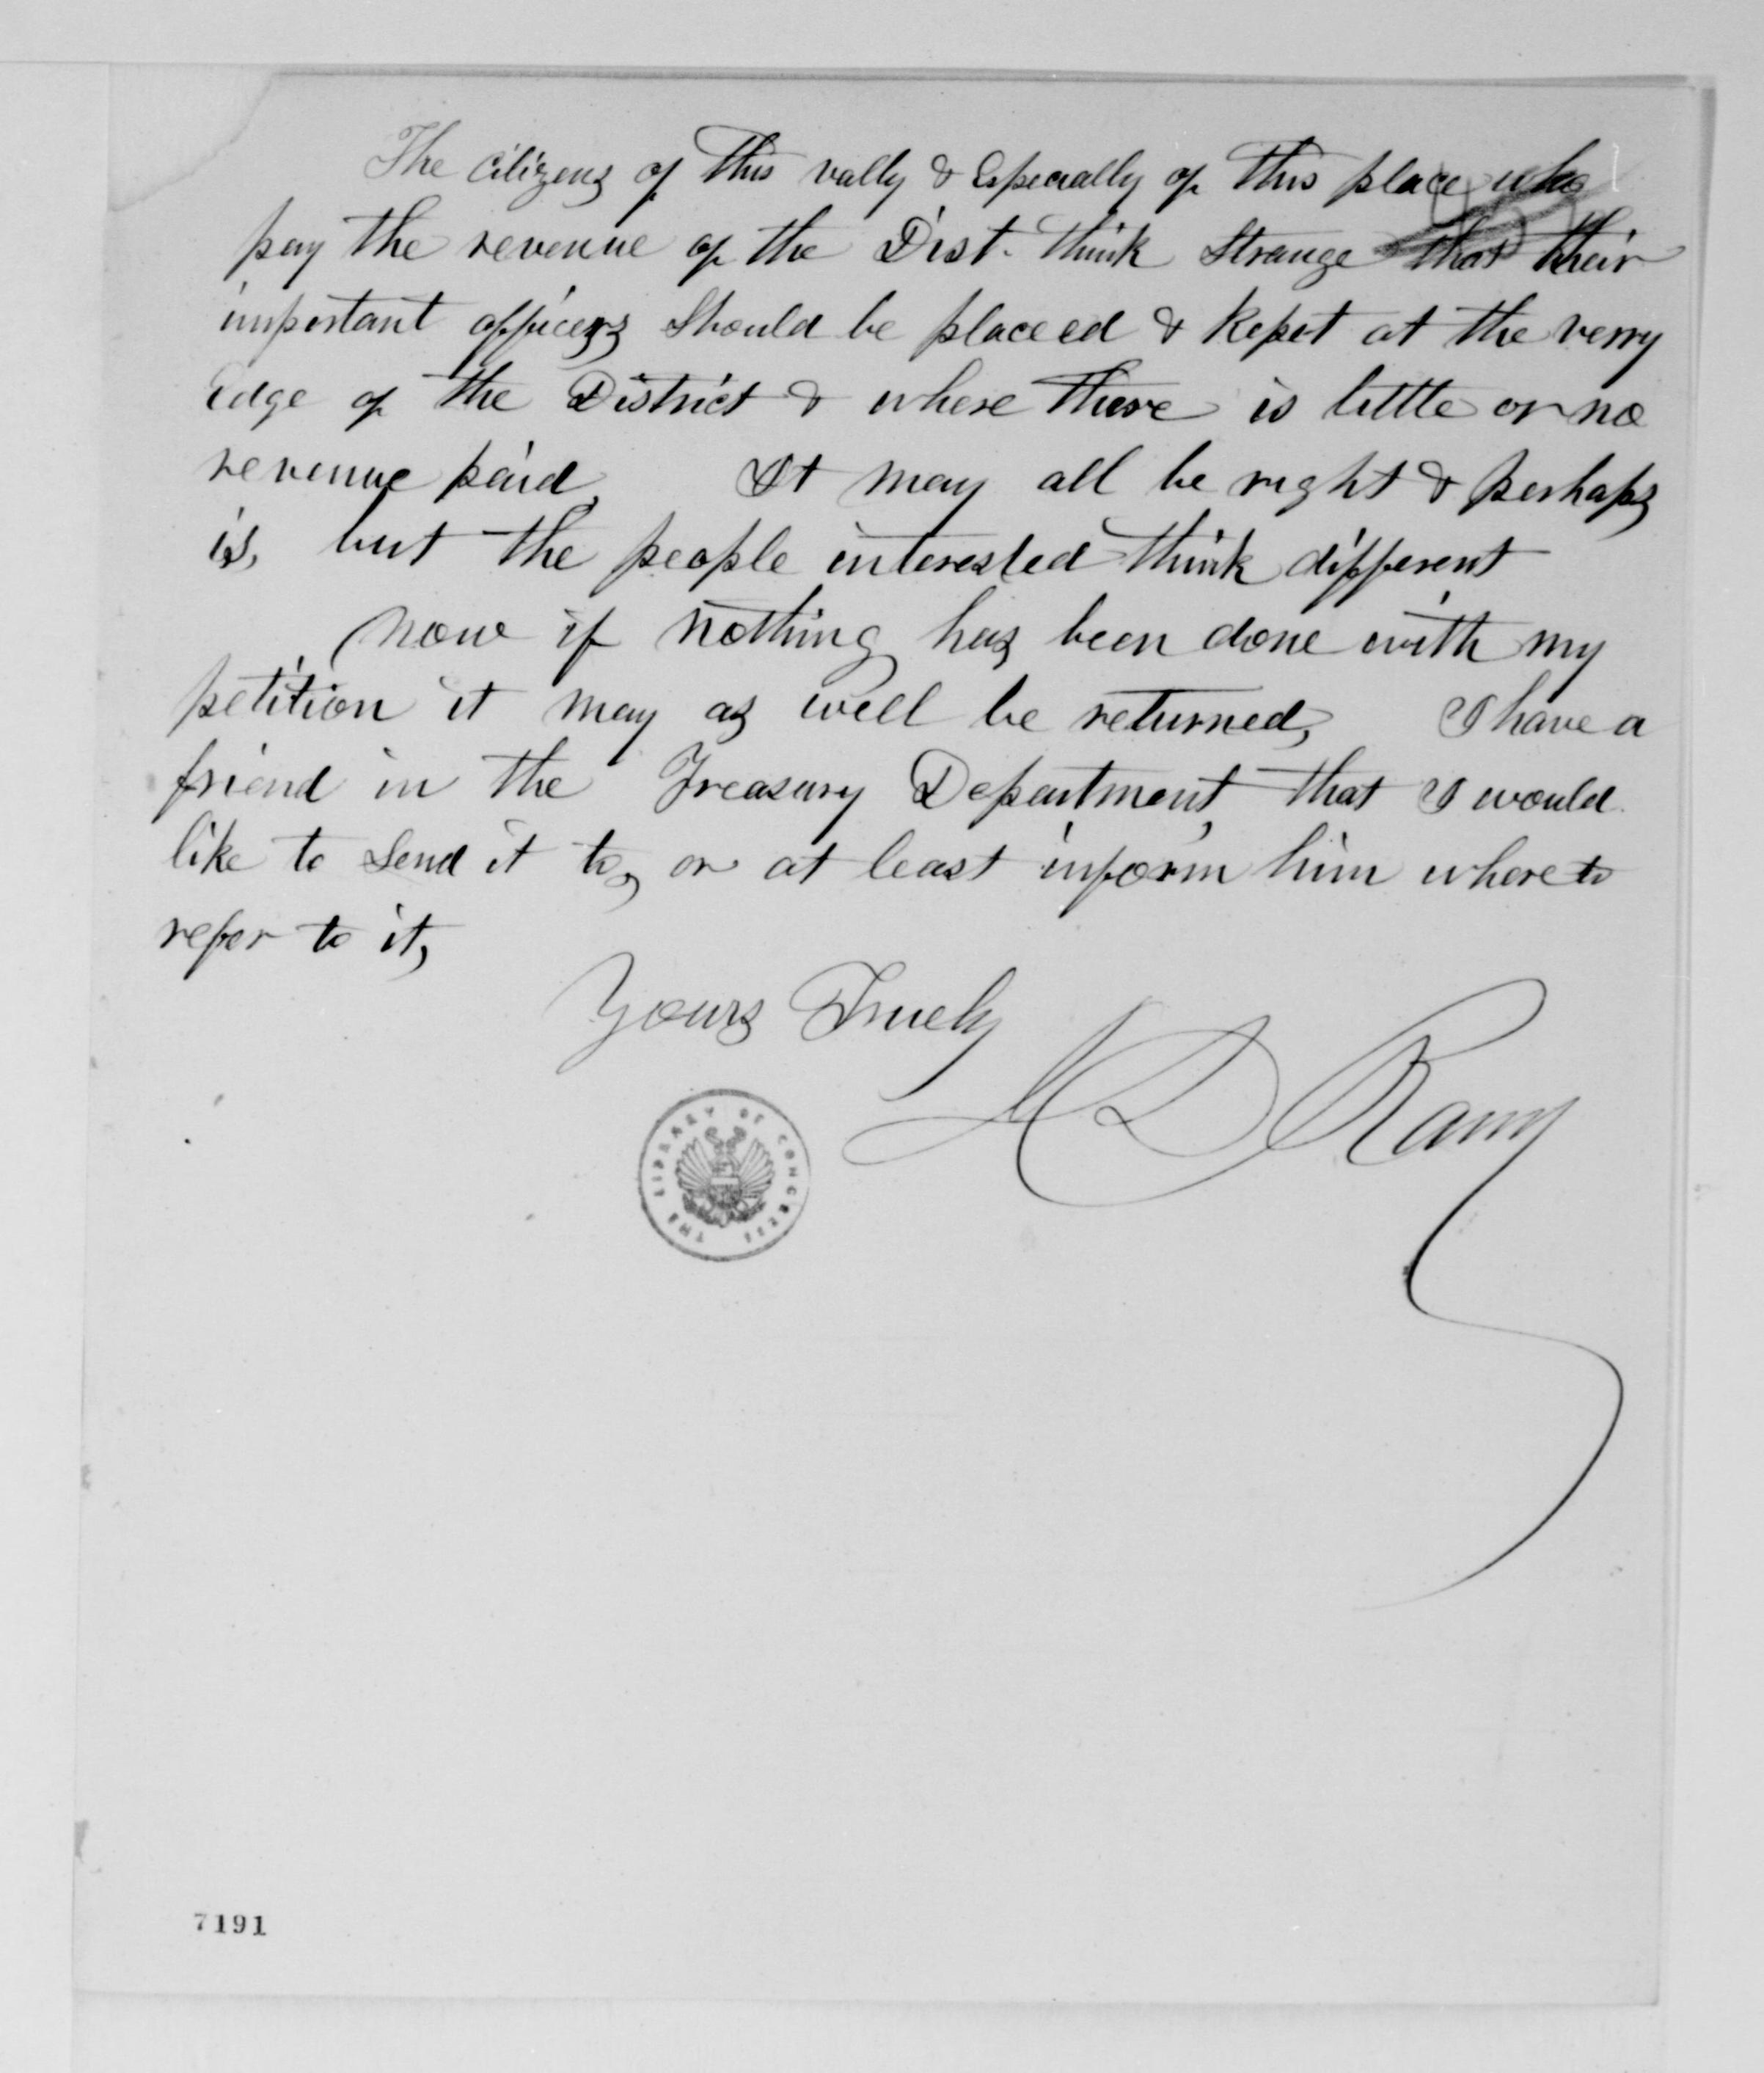 The citizens of this vally & Especially of this place who
pay the revenue of the Dist. think Strange that their
important officers Should be placeed & Kepet at the verry
Edge of the District & where there is little or no
revenue paid, It may all be right & perhaps
is, but the people interested think different
Now if nothing has been done with my
petition it may as well be returned, I have a
friend in the Treasury Department, that I would
like to Send it to, or at least inform him where to
refer to it,
Yours Truely
D Ramy
THE LIBRARY OF CONGRESS
7191